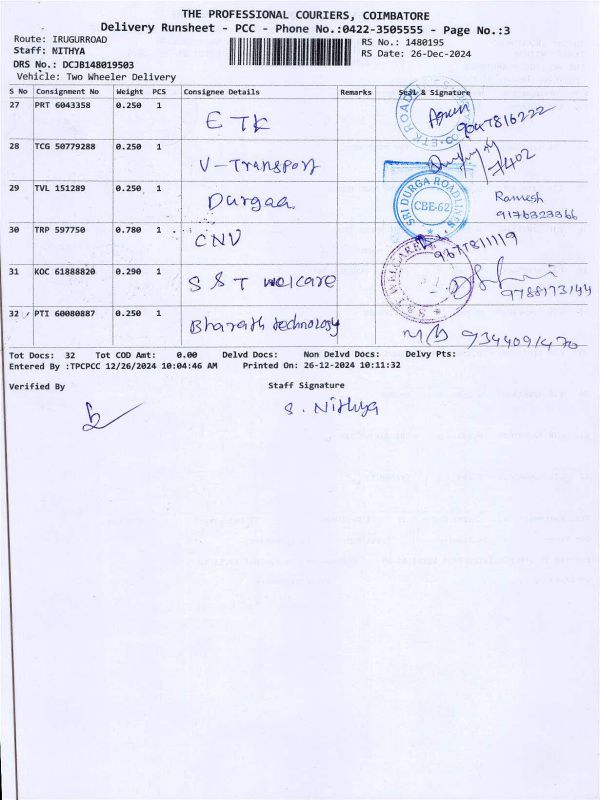 THE PROFESSIONAL COURIERS, COIMBATORE
Delivery Runsheet - PCC - Phone No.:0422-3505555 - Page No.:3
Route: IRUGURROAD
RS No.: 1480195
Staff: NITHYA
RS Date: 26-Dec-2024
DRS No.: DCJB148019503
Vehicle: Two Wheeler Delivery
S No Consignment No Weight PCS Consignee Details Remarks Seal & Signature
27 PRT 6043358 0.250 1 ETK
28 TCG 50779288 0.250 1 V-Transport 7402
29 TVL 151289 0.250 1 Durgaa SRI DURGA ROADLINES CBE-62 Ramesh
30 TRP 597750 0.780 1 CNV
31 KOC 61888820 0.290 1 S S T welcare
32 PTI 60080887 0.250 1 Bharath technology
Tot Docs: 32 Tot COD Amt: 0.00 Delvd Docs: Non Delvd Docs: Delvy Pts:
Entered By :TPCPCC 12/26/2024 10:04:46 AM Printed On: 26-12-2024 10:11:32
Verified By Staff Signature
S. Nithya